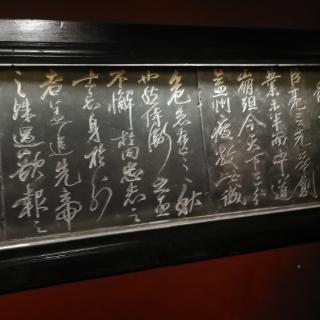 臣亮言先帝創
業未半而中道
崩殂今天下三分
益州疲敝此誠
危急存亡之秋
也然侍衛之臣
不懈於内忠志之
士忘身於外
者蓋追先帝
之殊遇欲報之